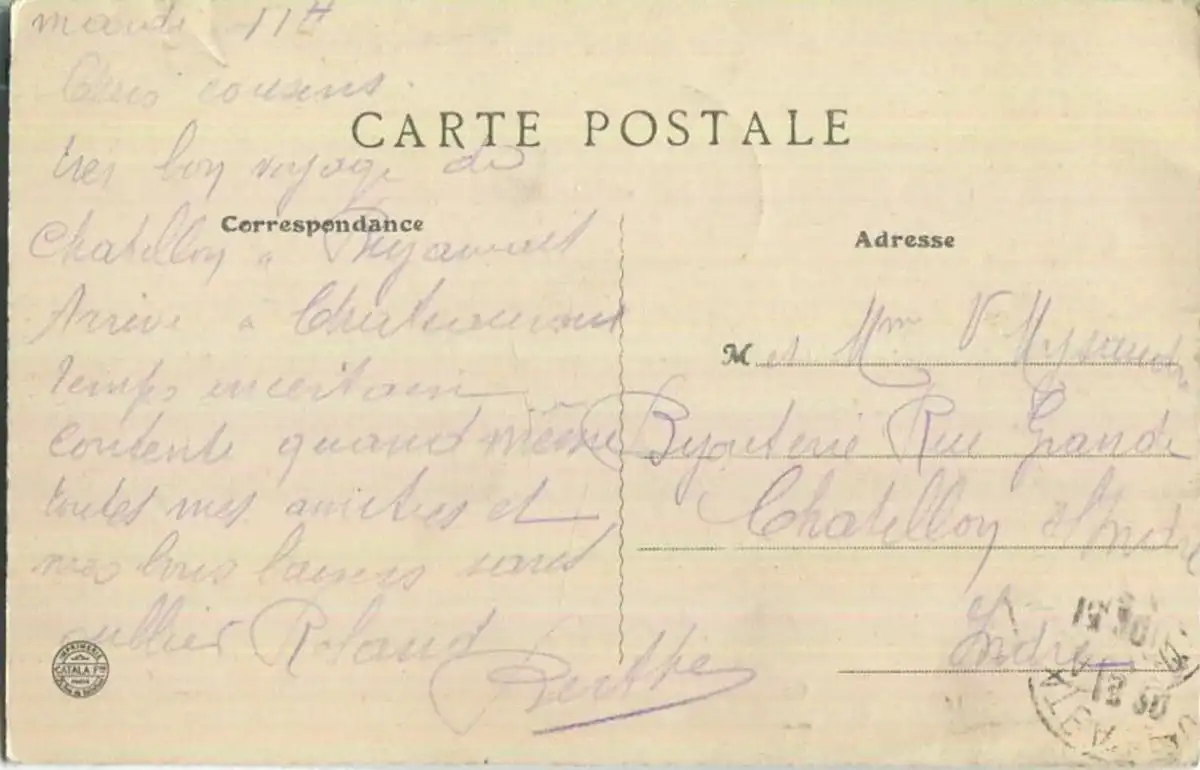 mardi 11H
Chers cousins
CARTE POSTALE
très bon voyage de
Correspondance
Chatillon a
Arrivé a Chateauroux
temps incertain
contente quand même
toutes mes amitiés et
mes bons baisers sans
oublier Roland
Berthe
Adresse
M et Mme V
Bijouterie Rue Grande
Chatillon s/ Indre
Indre
IMPRIMERIE
CATALA Frères
PARIS
12 30